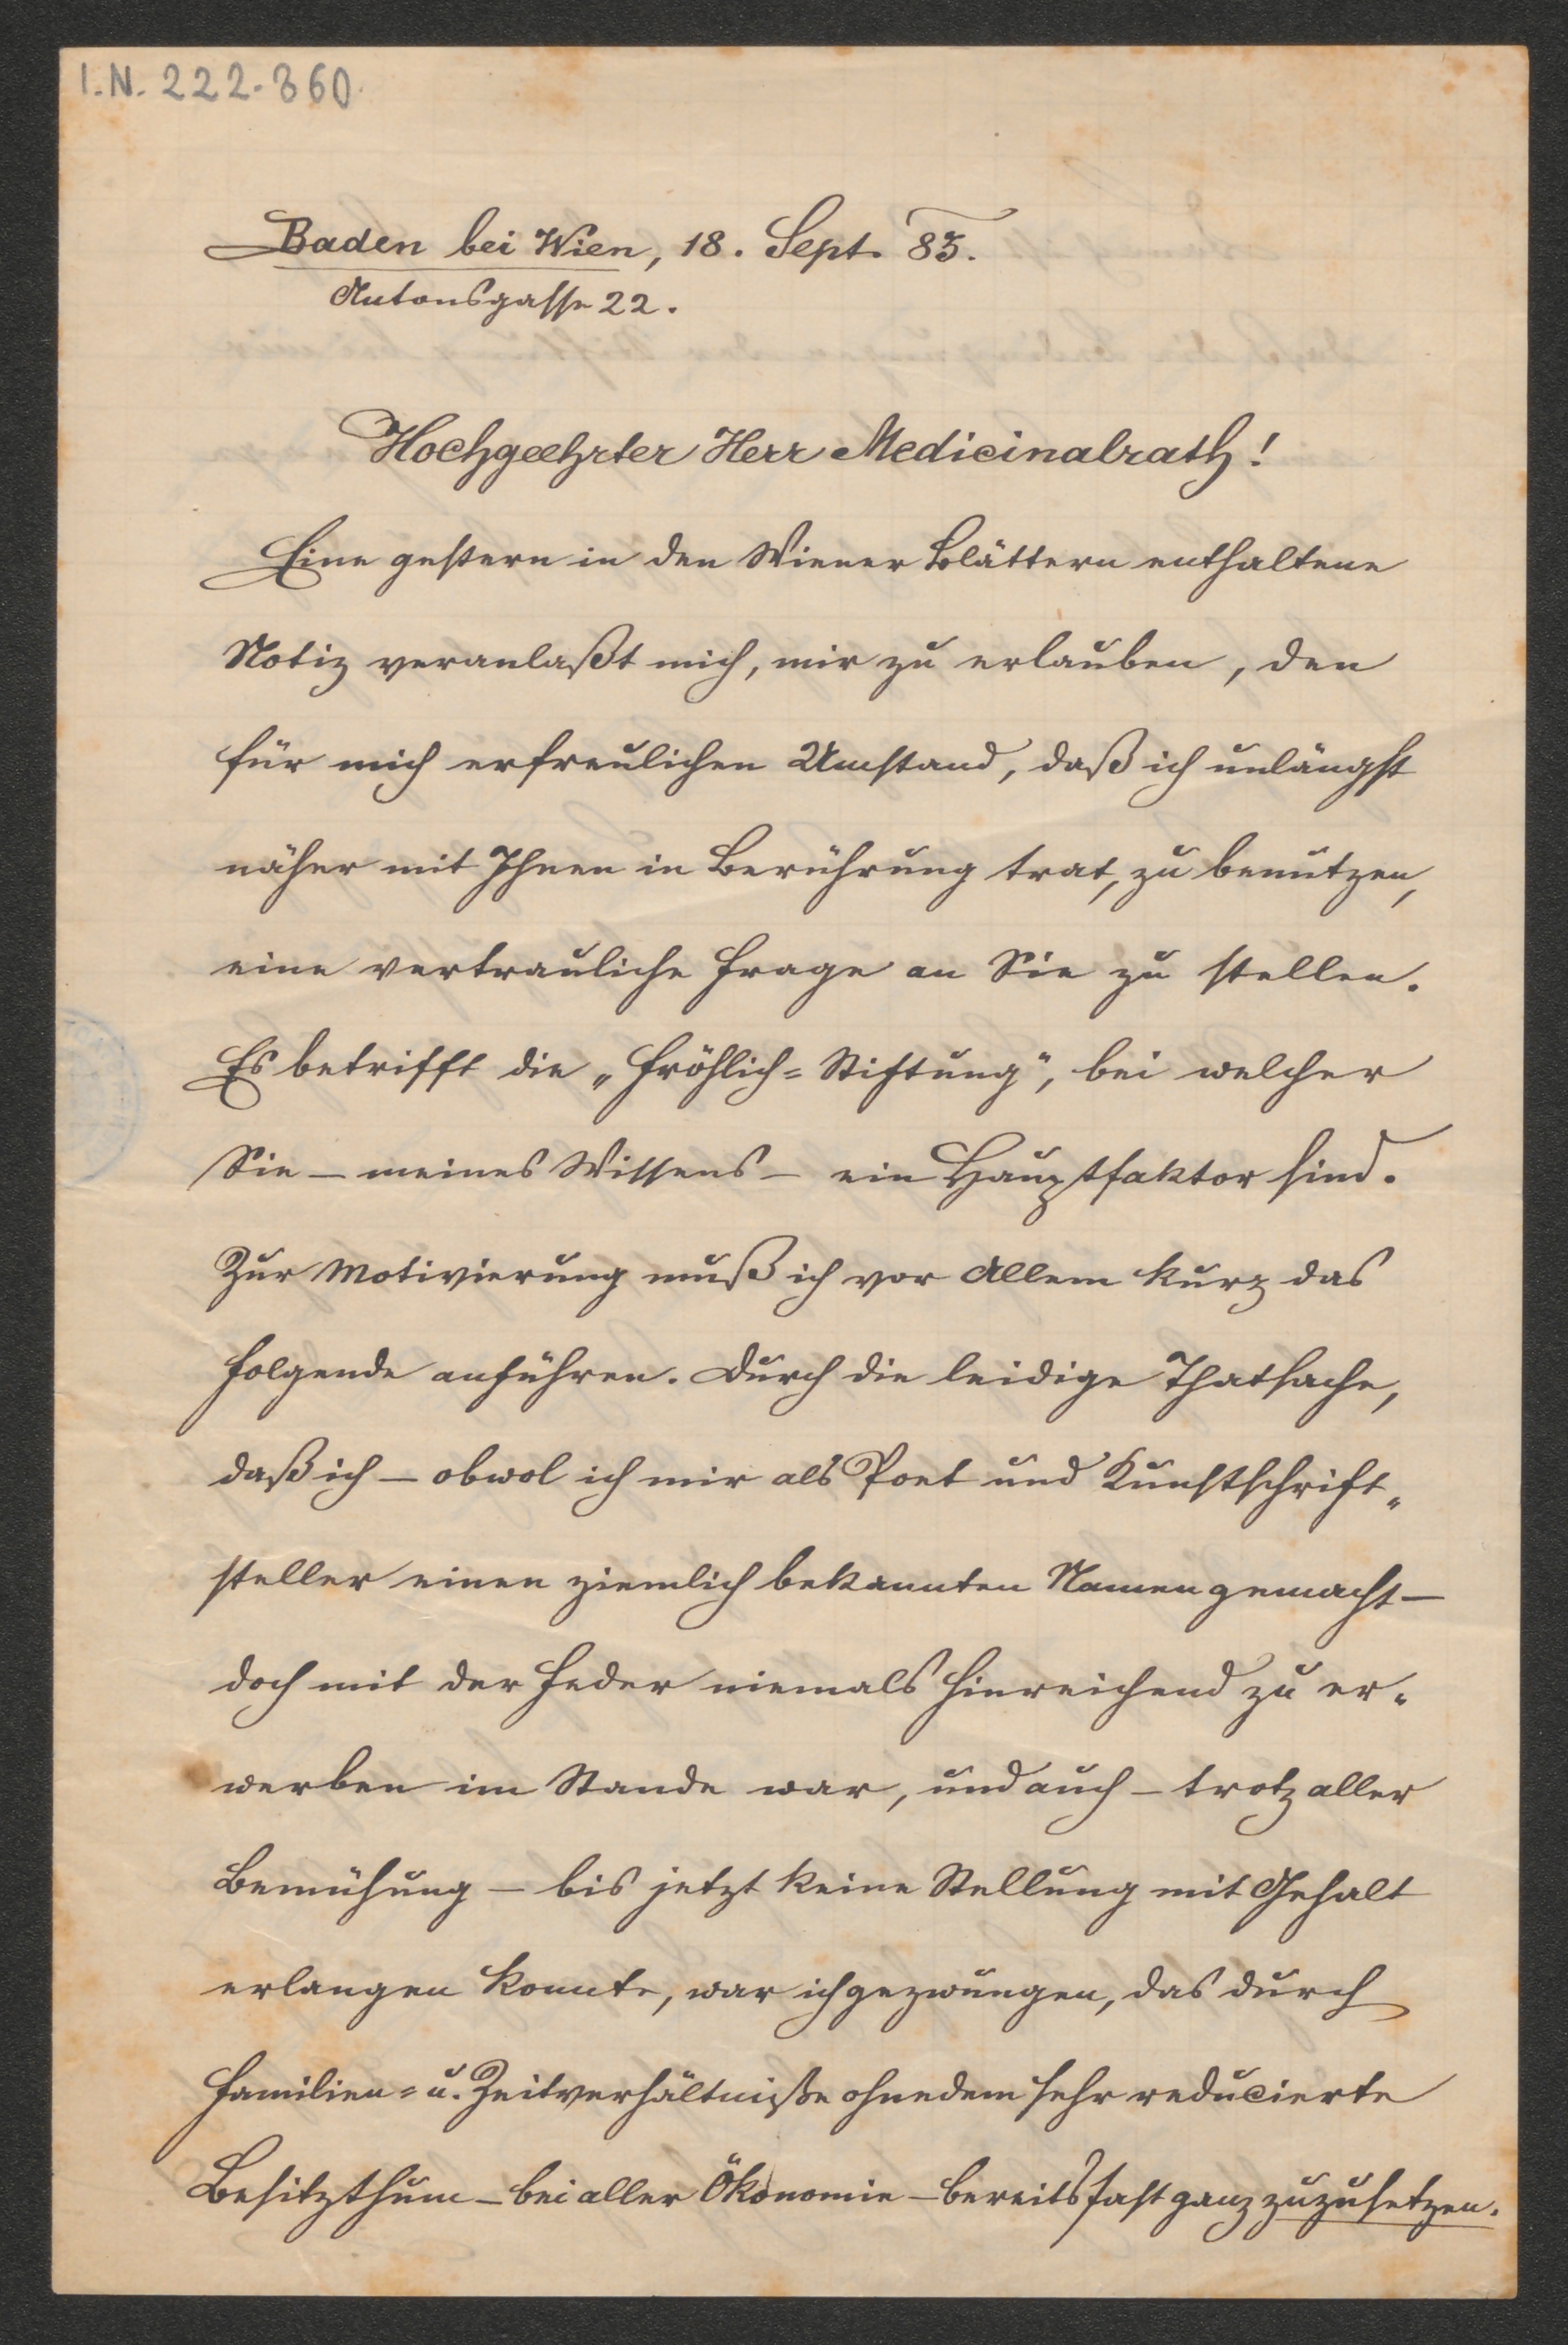 I.N. 222.360
Baden bei Wien, 18. Sept. 83.
Antonsgasse 22.
Hochgeehrter Herr Medicinalrath!
Eine gestern in den Wiener Blättern enthaltene
Notiz veranlaßt mich, mir zu erlauben, den
für mich erfreulichen Umstand, daß ich unlängst
näher mit Ihnen in Berührung trat, zu benützen,
eine vertrauliche Frage an Sie zu stellen.
Es betrifft die „Fröhlich=Stiftung", bei welcher
Sie – meines Wissens – ein Hauptfaktor sind.
Zur Motivierung muß ich vor Allem kurz das
Folgende anführen. Durch die leidige Thatsache,
daß ich – obwol ich mir als Poet und Kunstschrift=
steller einen ziemlich bekannten Namen gemacht –
doch mit der Feder niemals hinreichend zu er=
werben im Stande war, und auch – trotz aller
Bemühung – bis jetzt keine Stellung mit Gehalt
erlangen konnte, war ich gezwungen, das durch
Familien= u. Zeitverhältniße ohnedem sehr reducierte
Besitzthum – bei aller Ökonomie – bereits fast ganz zuzusetzen.